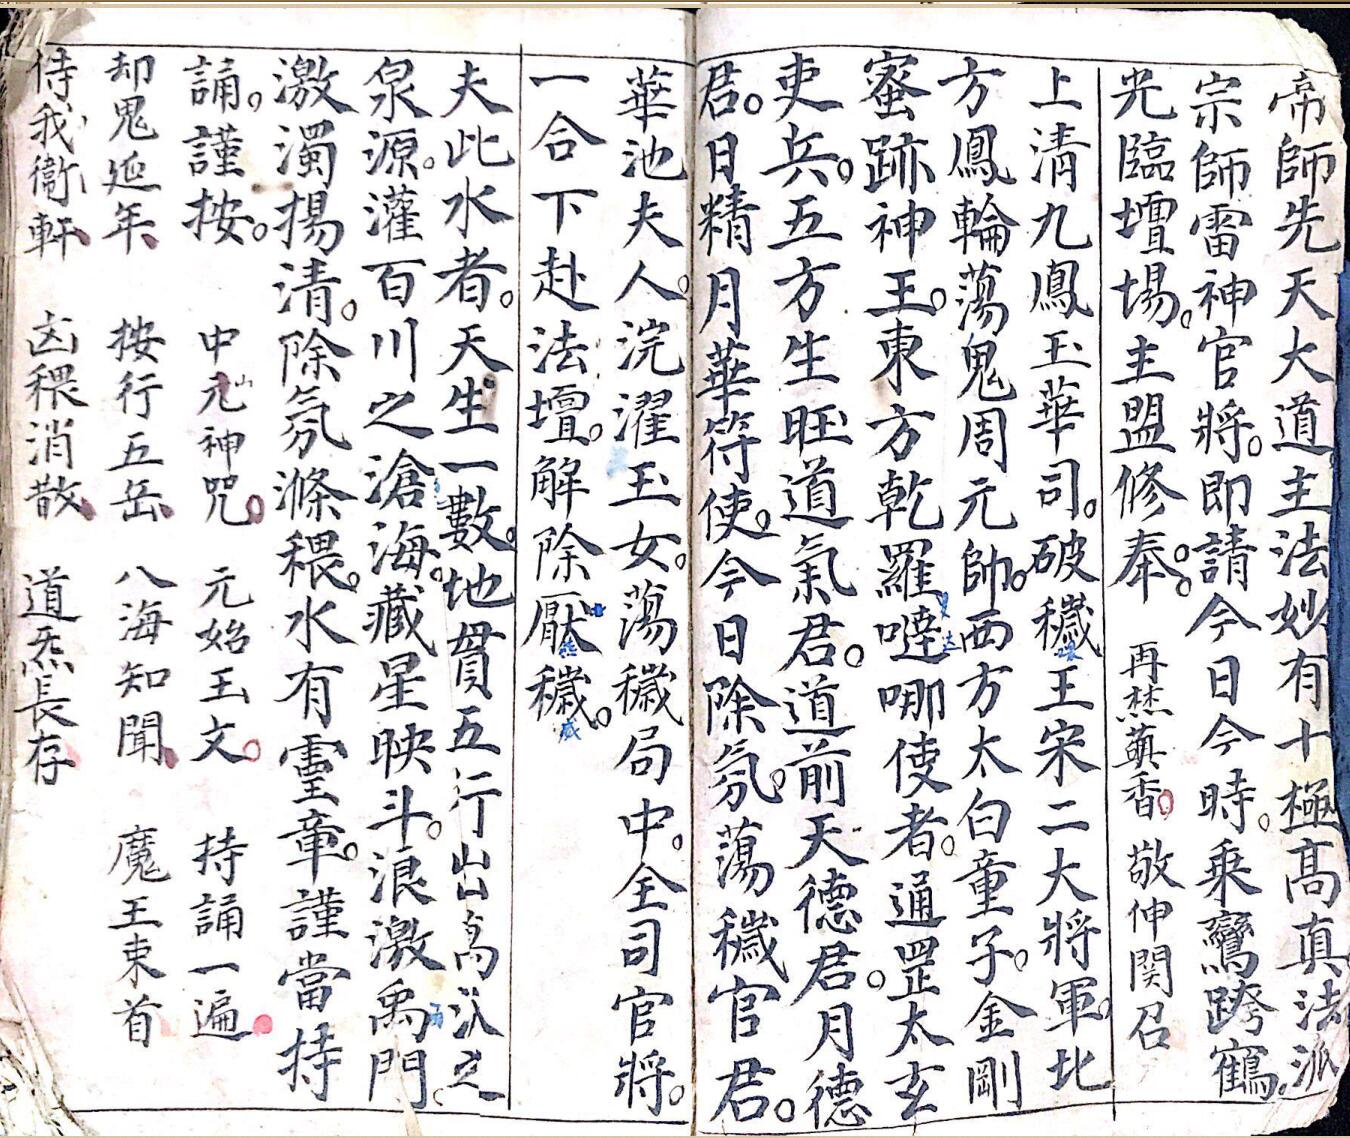 帝師先天大道主法妙有十極高真法派
宗師雷神官將即請今日今時乘鸞跨鶴
光臨壇場主盟修奉 再焚蓺香 敬伸関召
上清九鳳玉華司破穢王宋二大將軍北
方鳳輪蕩鬼周元帥西方太白童子金剛
蜜跡神王東方乾羅噠哪使者通罡太玄
吏兵五方生旺道氣君道前天德君月德
君日精月華符使今日除氛蕩穢官君
華池夫人浣濯玉女蕩穢局中全司官將
一合下赴法壇解除厭穢
夫此水者天生一數地貫五行出高沠之
泉源灌百川之滄海藏星映斗浪激禹門
激濁揚清除氛滌穢水有靈章謹當持
誦謹按 中元神咒 元始玉文 持誦一遍
却鬼延年 按行五岳 八海知聞 魔王束首
侍我衞軒 凶穢消散 道炁長存